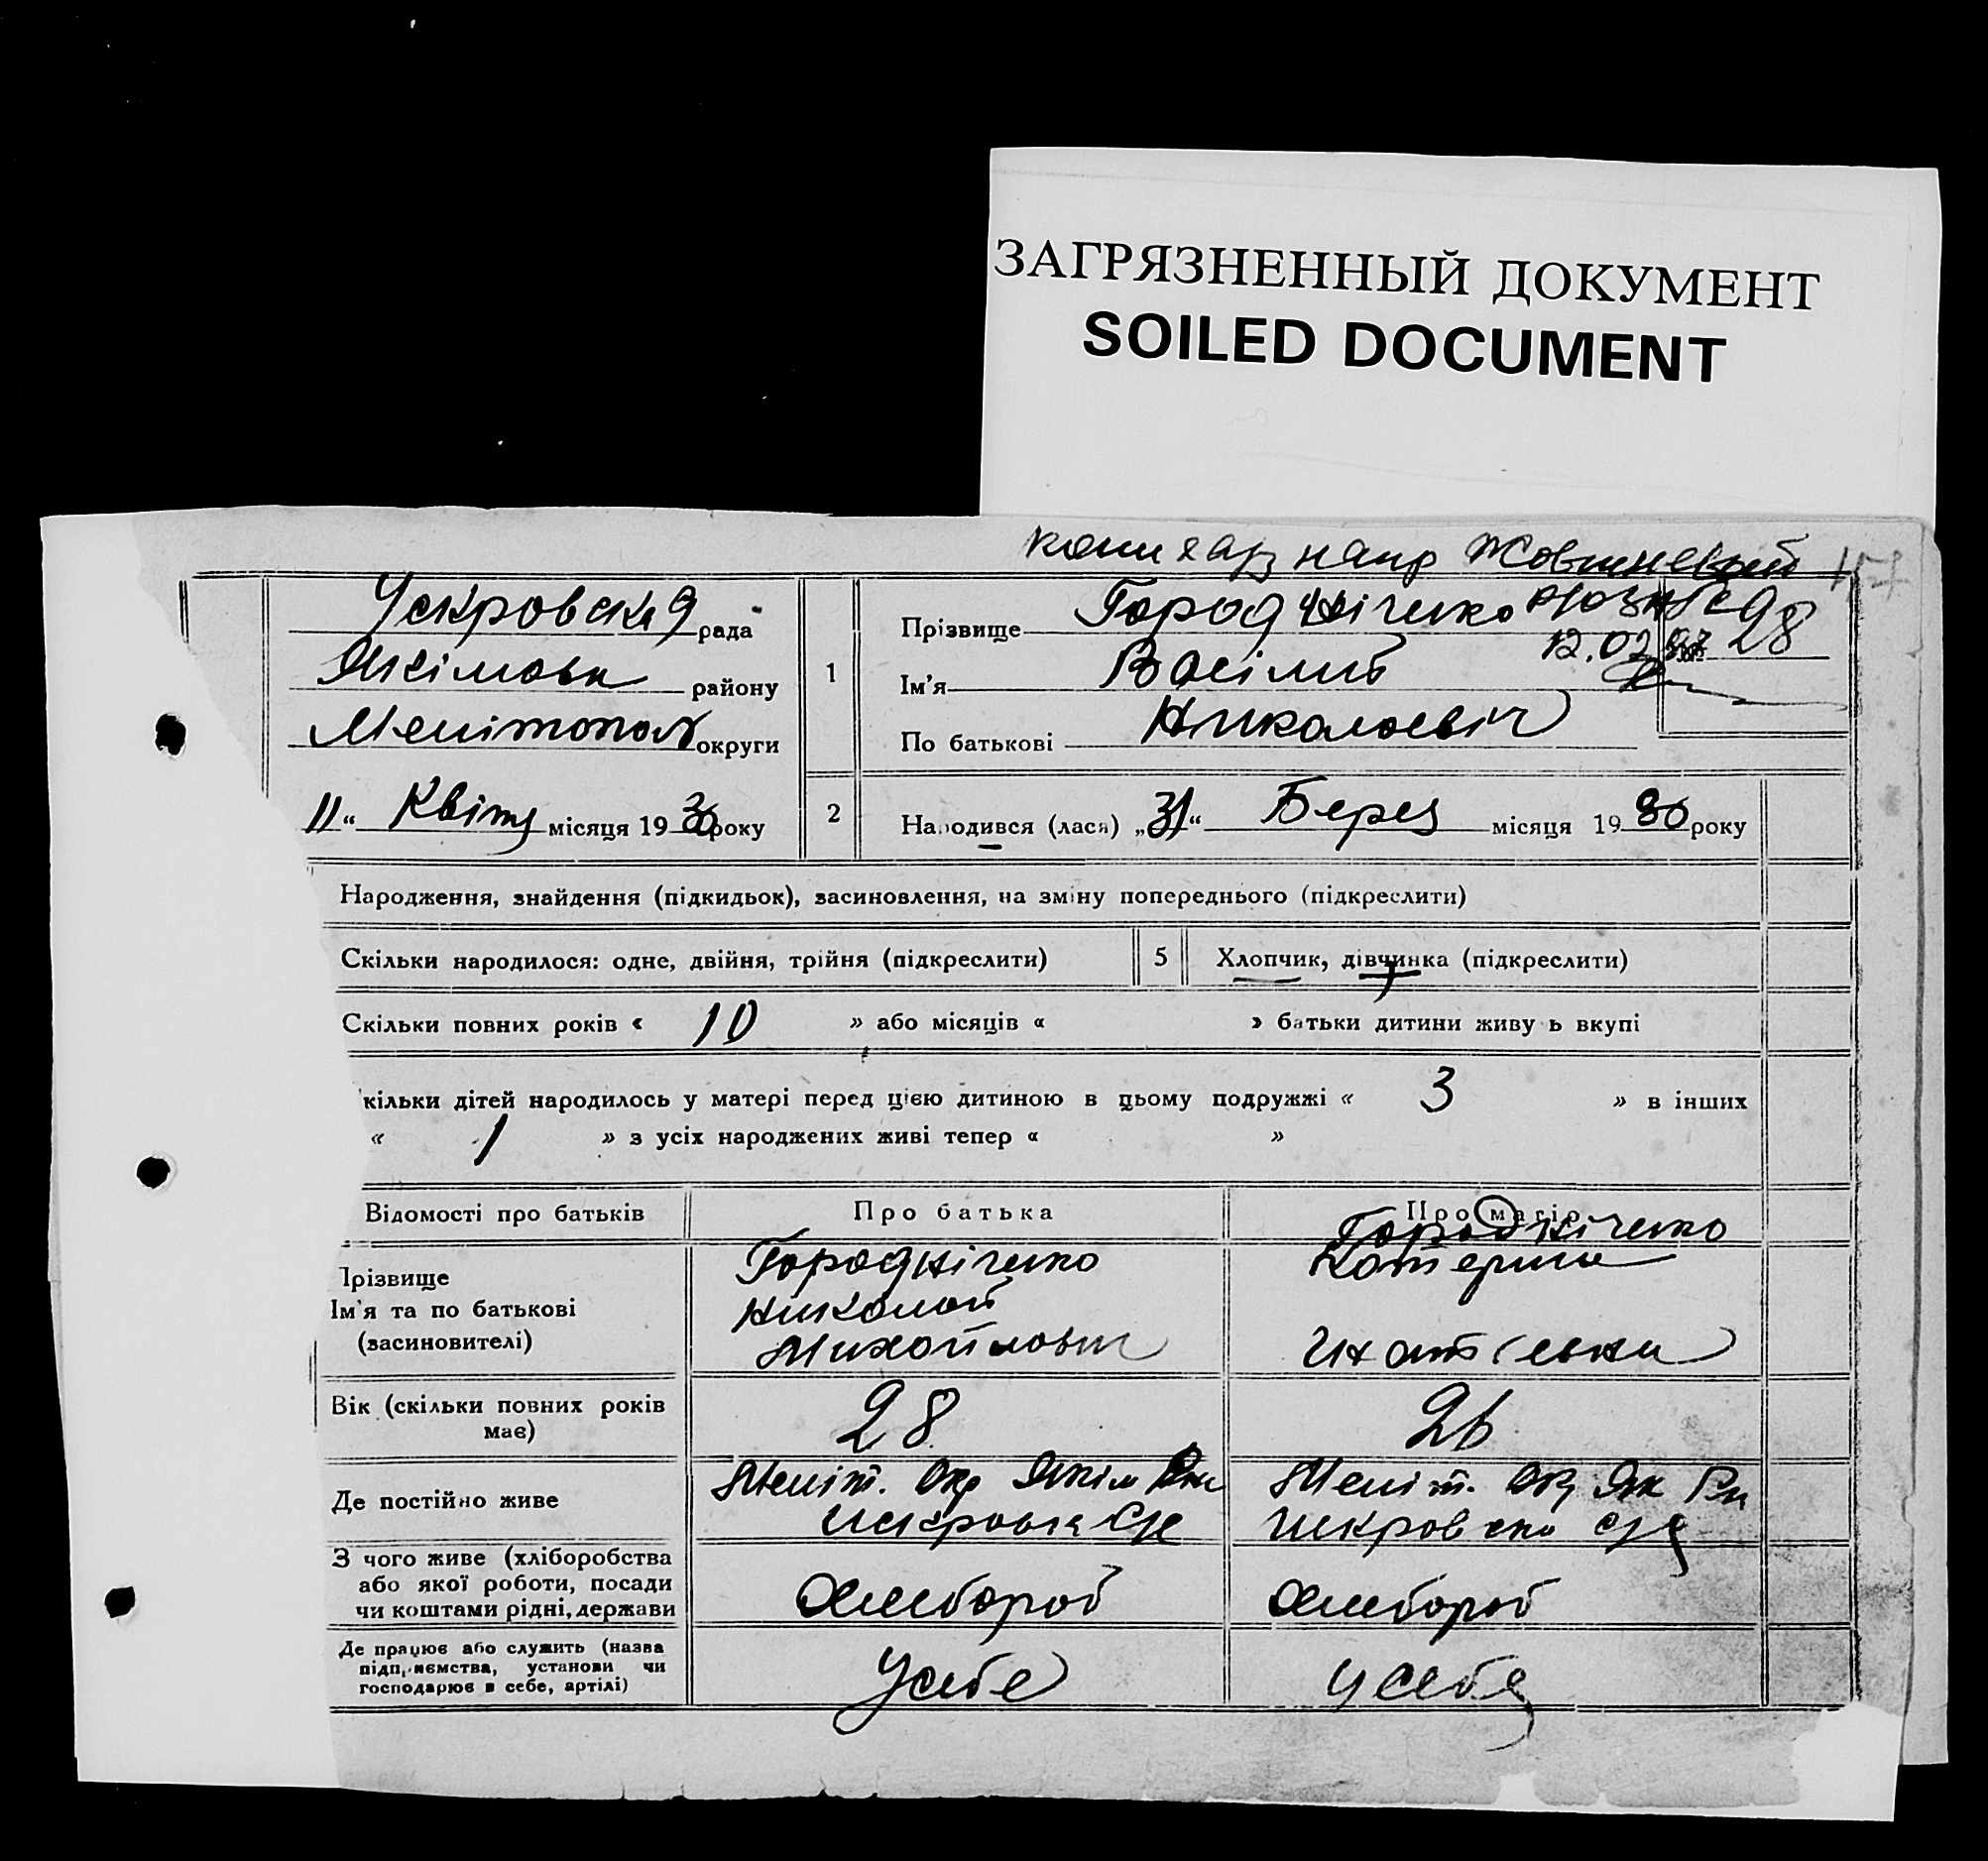 ЗАГРЯЗНЕННЫЙ ДОКУМЕНТ
SOILED DOCUMENT
Жовтневый
Іскровская рада
Якімовк району
Мелітополь округи
11 " Квітня місяця 1930 року
1
Прізвище Городніченко
28
12.02.97
Ім'я Васілий
По батькові Николаевіч
2
Народився (лася) „31" Берез місяця 1930 року
Народження, знайдення (підкидьок), засиновлення, на зміну попереднього (підкреслити)
Скільки народилося: одне, двійня, трійня (підкреслити)
5
Хлопчик, дівчинка (підкреслити)
Скільки повних років « 10 » або місяців « » батьки дитини живуть вкупі
кільки дітей народилось у матері перед цією дитиною в цьому подружжі « 3 » в інших
« 1 » з усіх народжених живі тепер « »
Відомості про батьків
Про батька
Про матір
Прізвище
Ім'я та по батькові
(засиновителі)
Городніченко
Николай
Михайлович
Городніченко
Катерина
Вік (скільки повних років
має)
28
26
Де постійно живе
Меліт. Окр Якім Рн
Искровка
Меліт. Ок Як Рн
Искровка
З чого живе (хліборобства
або якої роботи, посади
чи коштами рідні, держави
Хлебороб
Хлебороб
Де працює або служить (назва
підприємства, установи чи
господарює в себе, артілі)
У себе
У себе